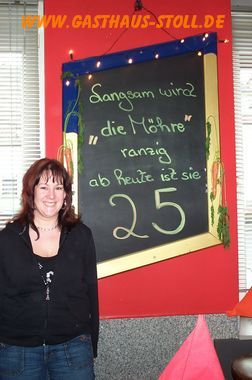 WWW.GASTHAUS-STOLL.DE
Langsam wird
"die Möhre"
ranzig
ab heute ist sie
25